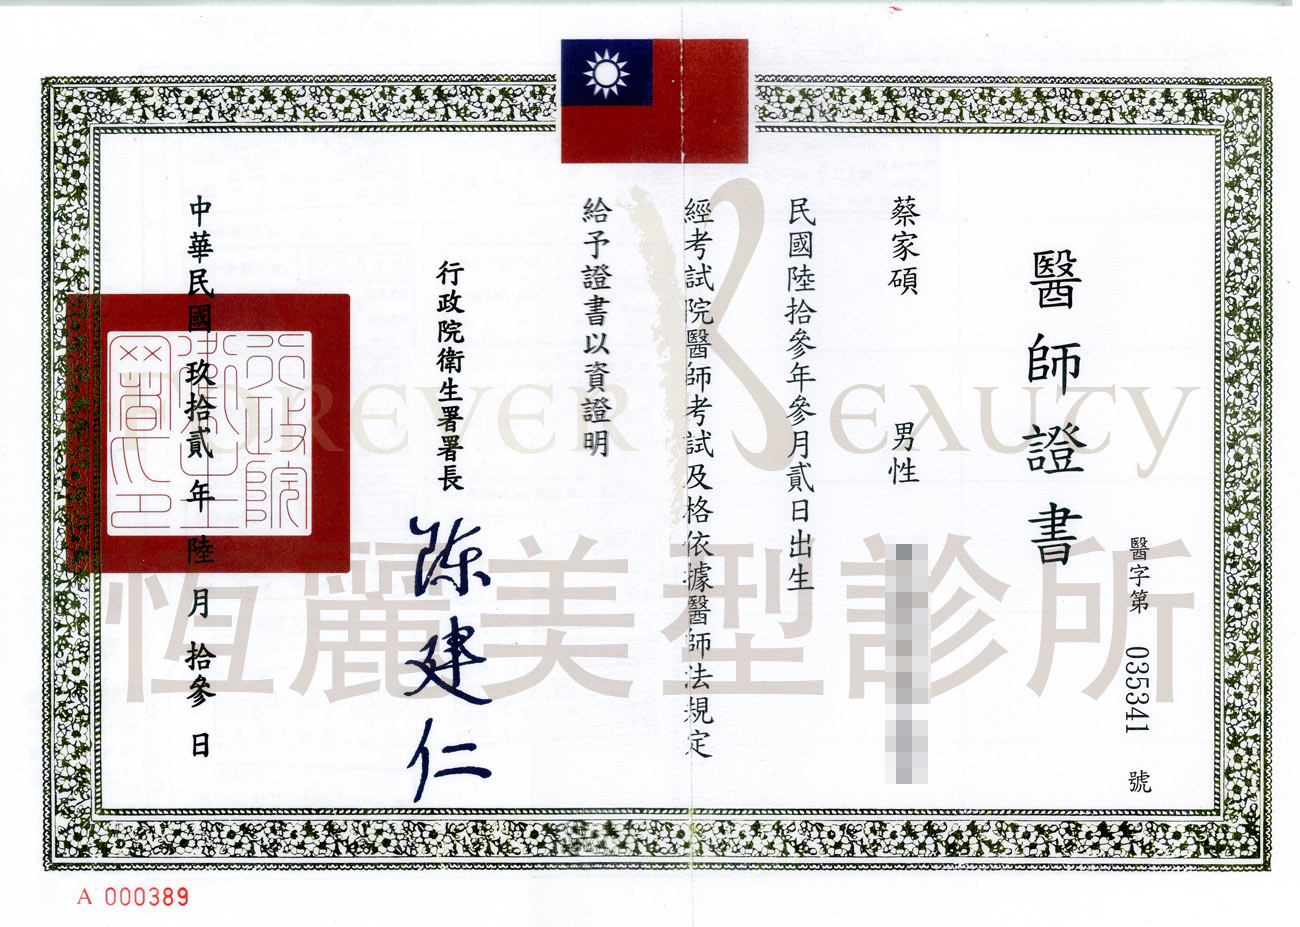 醫師證書
醫字第 035341 號
蔡家碩 男性
民國陸拾參年參月貳日出生
經考試院醫師考試及格依據醫師法規定
給予證書以資證明
行政院衛生署署長 陳建仁
中華民國玖拾貳年陸月拾參日
行政院
衛生署
署印
FOREVER BEAUTY
恆麗美型診所
A 000389